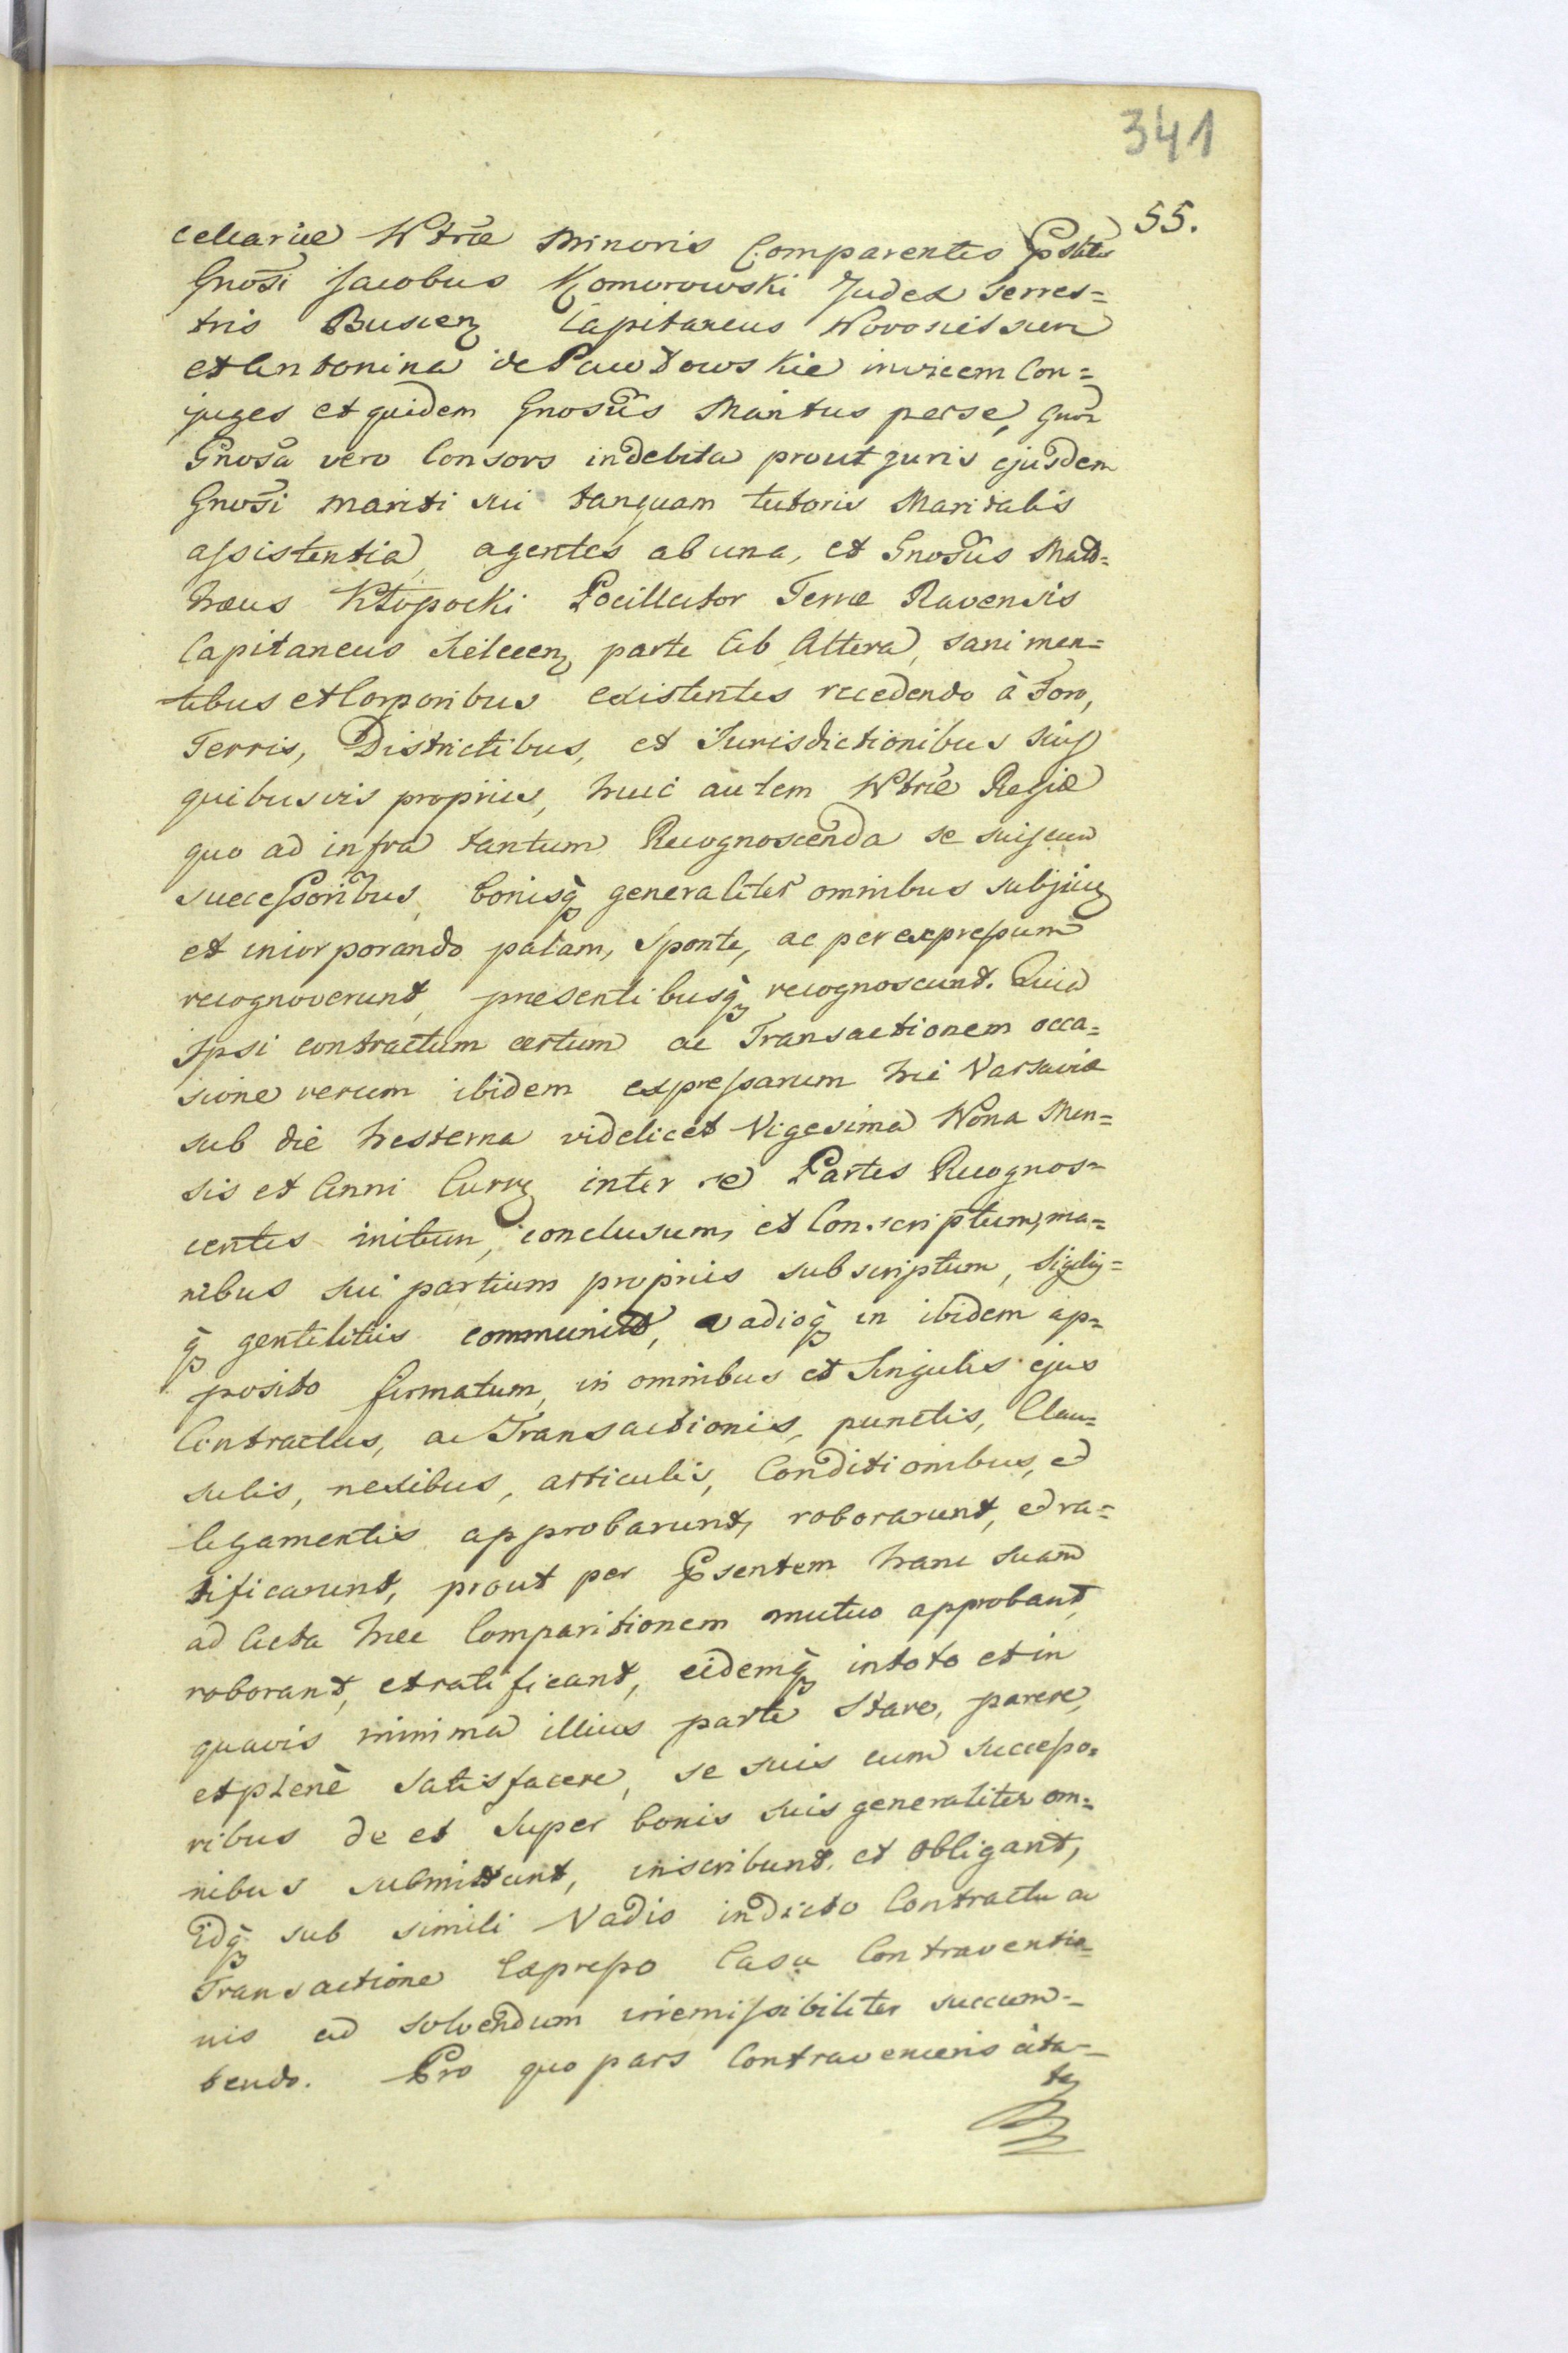 341
55.
cellariæ Ntræ Minoris Comparentes Psttes
Gnosi Jacobus Komorowski Judex Terres=
tris Buscen Capitaneus Novosielscen
et Antonina de Pawłowskie invicem Con=
juges et quidem Gnosūs Maritus per se,
Gnosa vero Consors in debita prout juris ejusdem
Gnosi mariti sui tanquam tutoris Maritalis
assistentia, agentes ab una, et Gnosūs Mat=
hæus Kłopocki Pocillator Terræ Ravensis
Capitaneus parte ab Altera, sani men=
tibus et Corporibus existentes recedendo à Foro,
Terris, Districtibus, et Jurisdictionibus suis
quibusvis propriis, huic autem Ntræ Regiæ
quo ad infra tantum Recognoscenda se suiscum
successoribus, bonisq generaliter omnibus subjiciē
et incorporando palam, sponte, ac per expressum
recognoverunt, presentibusq recognoscunt. Quia
Ipsi contractum certum ac Transactionem occa=
sione rerum ibidem expressarum hic Varsaviæ
sub die hesterna videlicet Vigesima Nona Men=
sis et Anni Curr inter se Partes Recognos=
centes initum, conclusum, et Conscriptum, ma=
nibus sui partium propriis subscriptum, Sigillis=
q gentilitiis communit, vadioq in ibidem ap=
posito firmatum, in omnibus et Singulis ejus
Contractus, ac Transactionis, punctis, Clau=
sulis, nexibus, articulis, Conditionibus, et
legamentis approbarunt, roborarunt, et ra=
tificarunt, prout per Psentem hanc suam
ad Acta hæc Comparitionem mutuo approbant,
roborant, et ratificant, eidemq in toto et in
quavis minima illius parte Stare, parere,
et plenè satisfacere, se suis cum successo=
ribus de et super bonis suis generaliter om=
nibus submittunt, inscribunt, et obligant,
Idq sub simili Vadio in dicto Contractu ac
Transactione Expresso Casu Contraventio=
nis ad solvendum irremissibiliter succum=
bendo. Pro quo pars Contraveniens cita=
ta